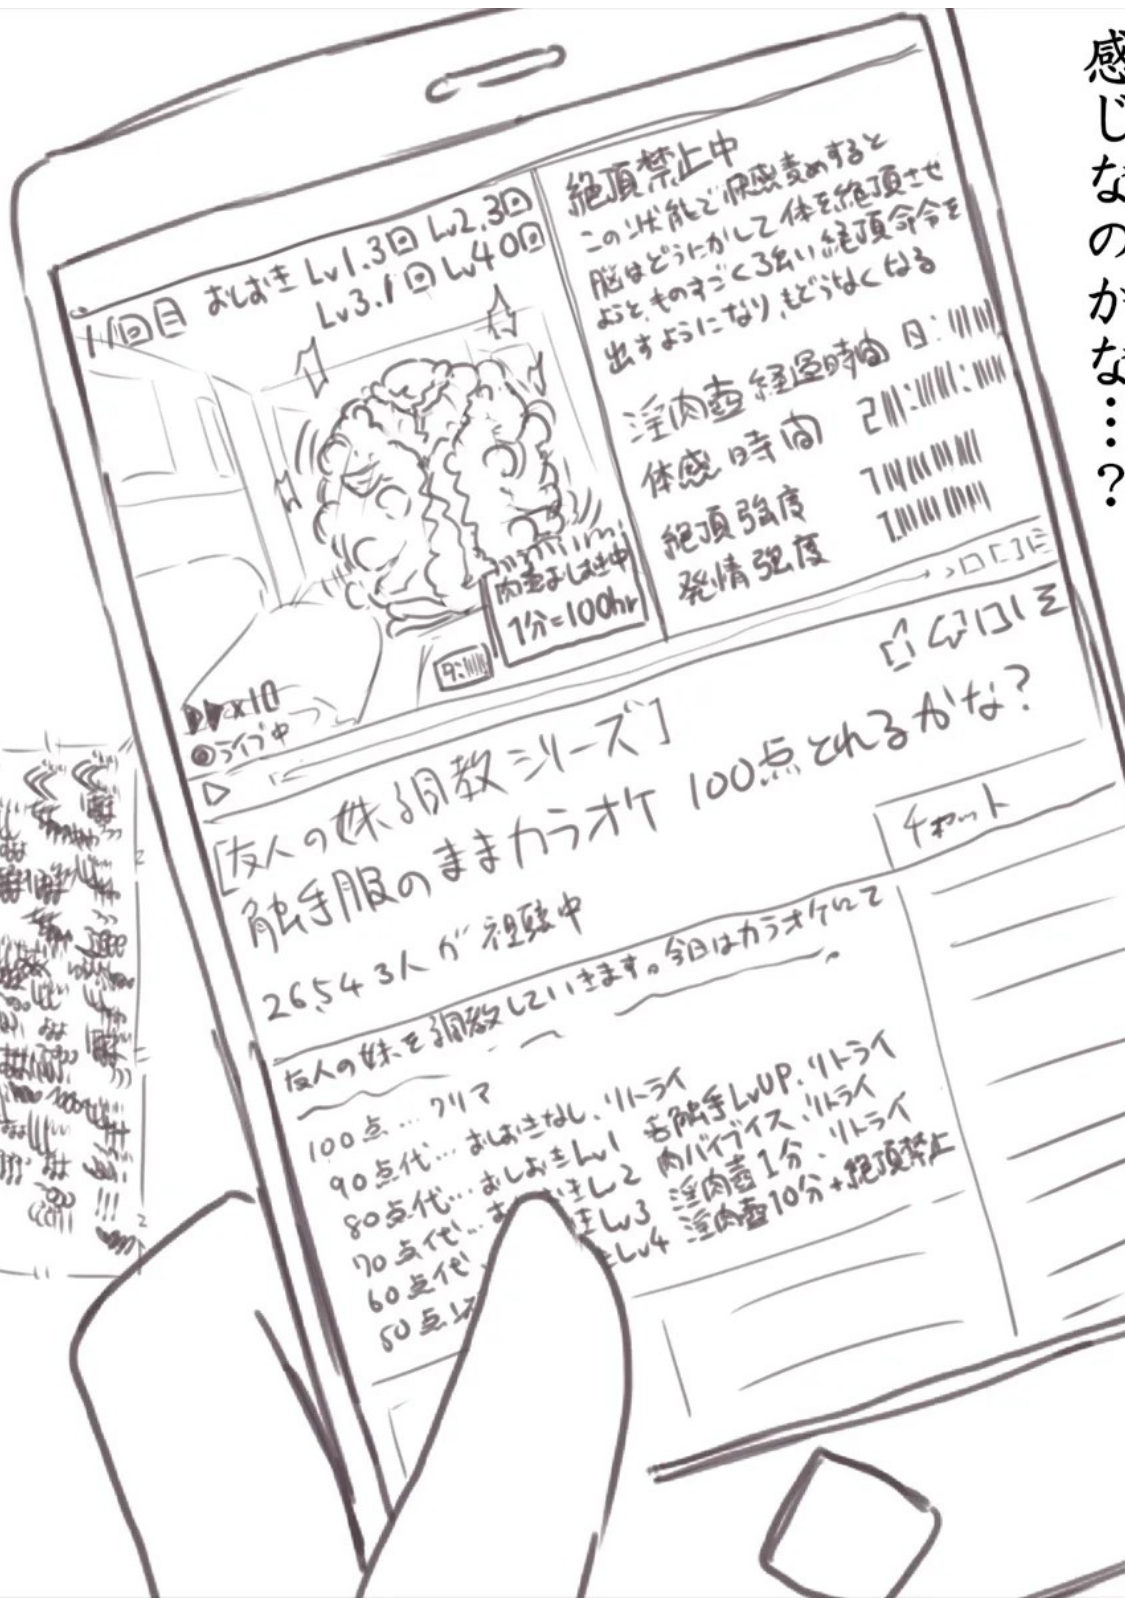 感じなのかな…?
11回目 おしおき Lv1.3回 Lv2.3回
Lv3.1回 Lv4 0回
肉壺おしおき中
1分=100hr
▶▶×10
◎ライブ中
絶頂禁止中
この状態で快感責めすると
脳はどうにかして体を絶頂させ
ようと、ものすごく強い絶頂命令を
出すようになり、もどうなくなる
淫肉壺 経過時間
体感時間
絶頂強度
発情強度
[友人の妹調教シリーズ]
触手服のままカラオケ 100点とれるかな?
26,543人が視聴中
チャット
友人の妹を調教していきます。今日はカラオケにて
100点…クリア
90点代…おしおきなし、リトライ
80点代…おしおきLv1 舌触手LvUP、リトライ
70点代…おしおきLv2 肉バイブイス、リトライ
60点代 Lv3 淫肉壺1分、リトライ
50点 Lv4 淫肉壺10分+絶頂禁止